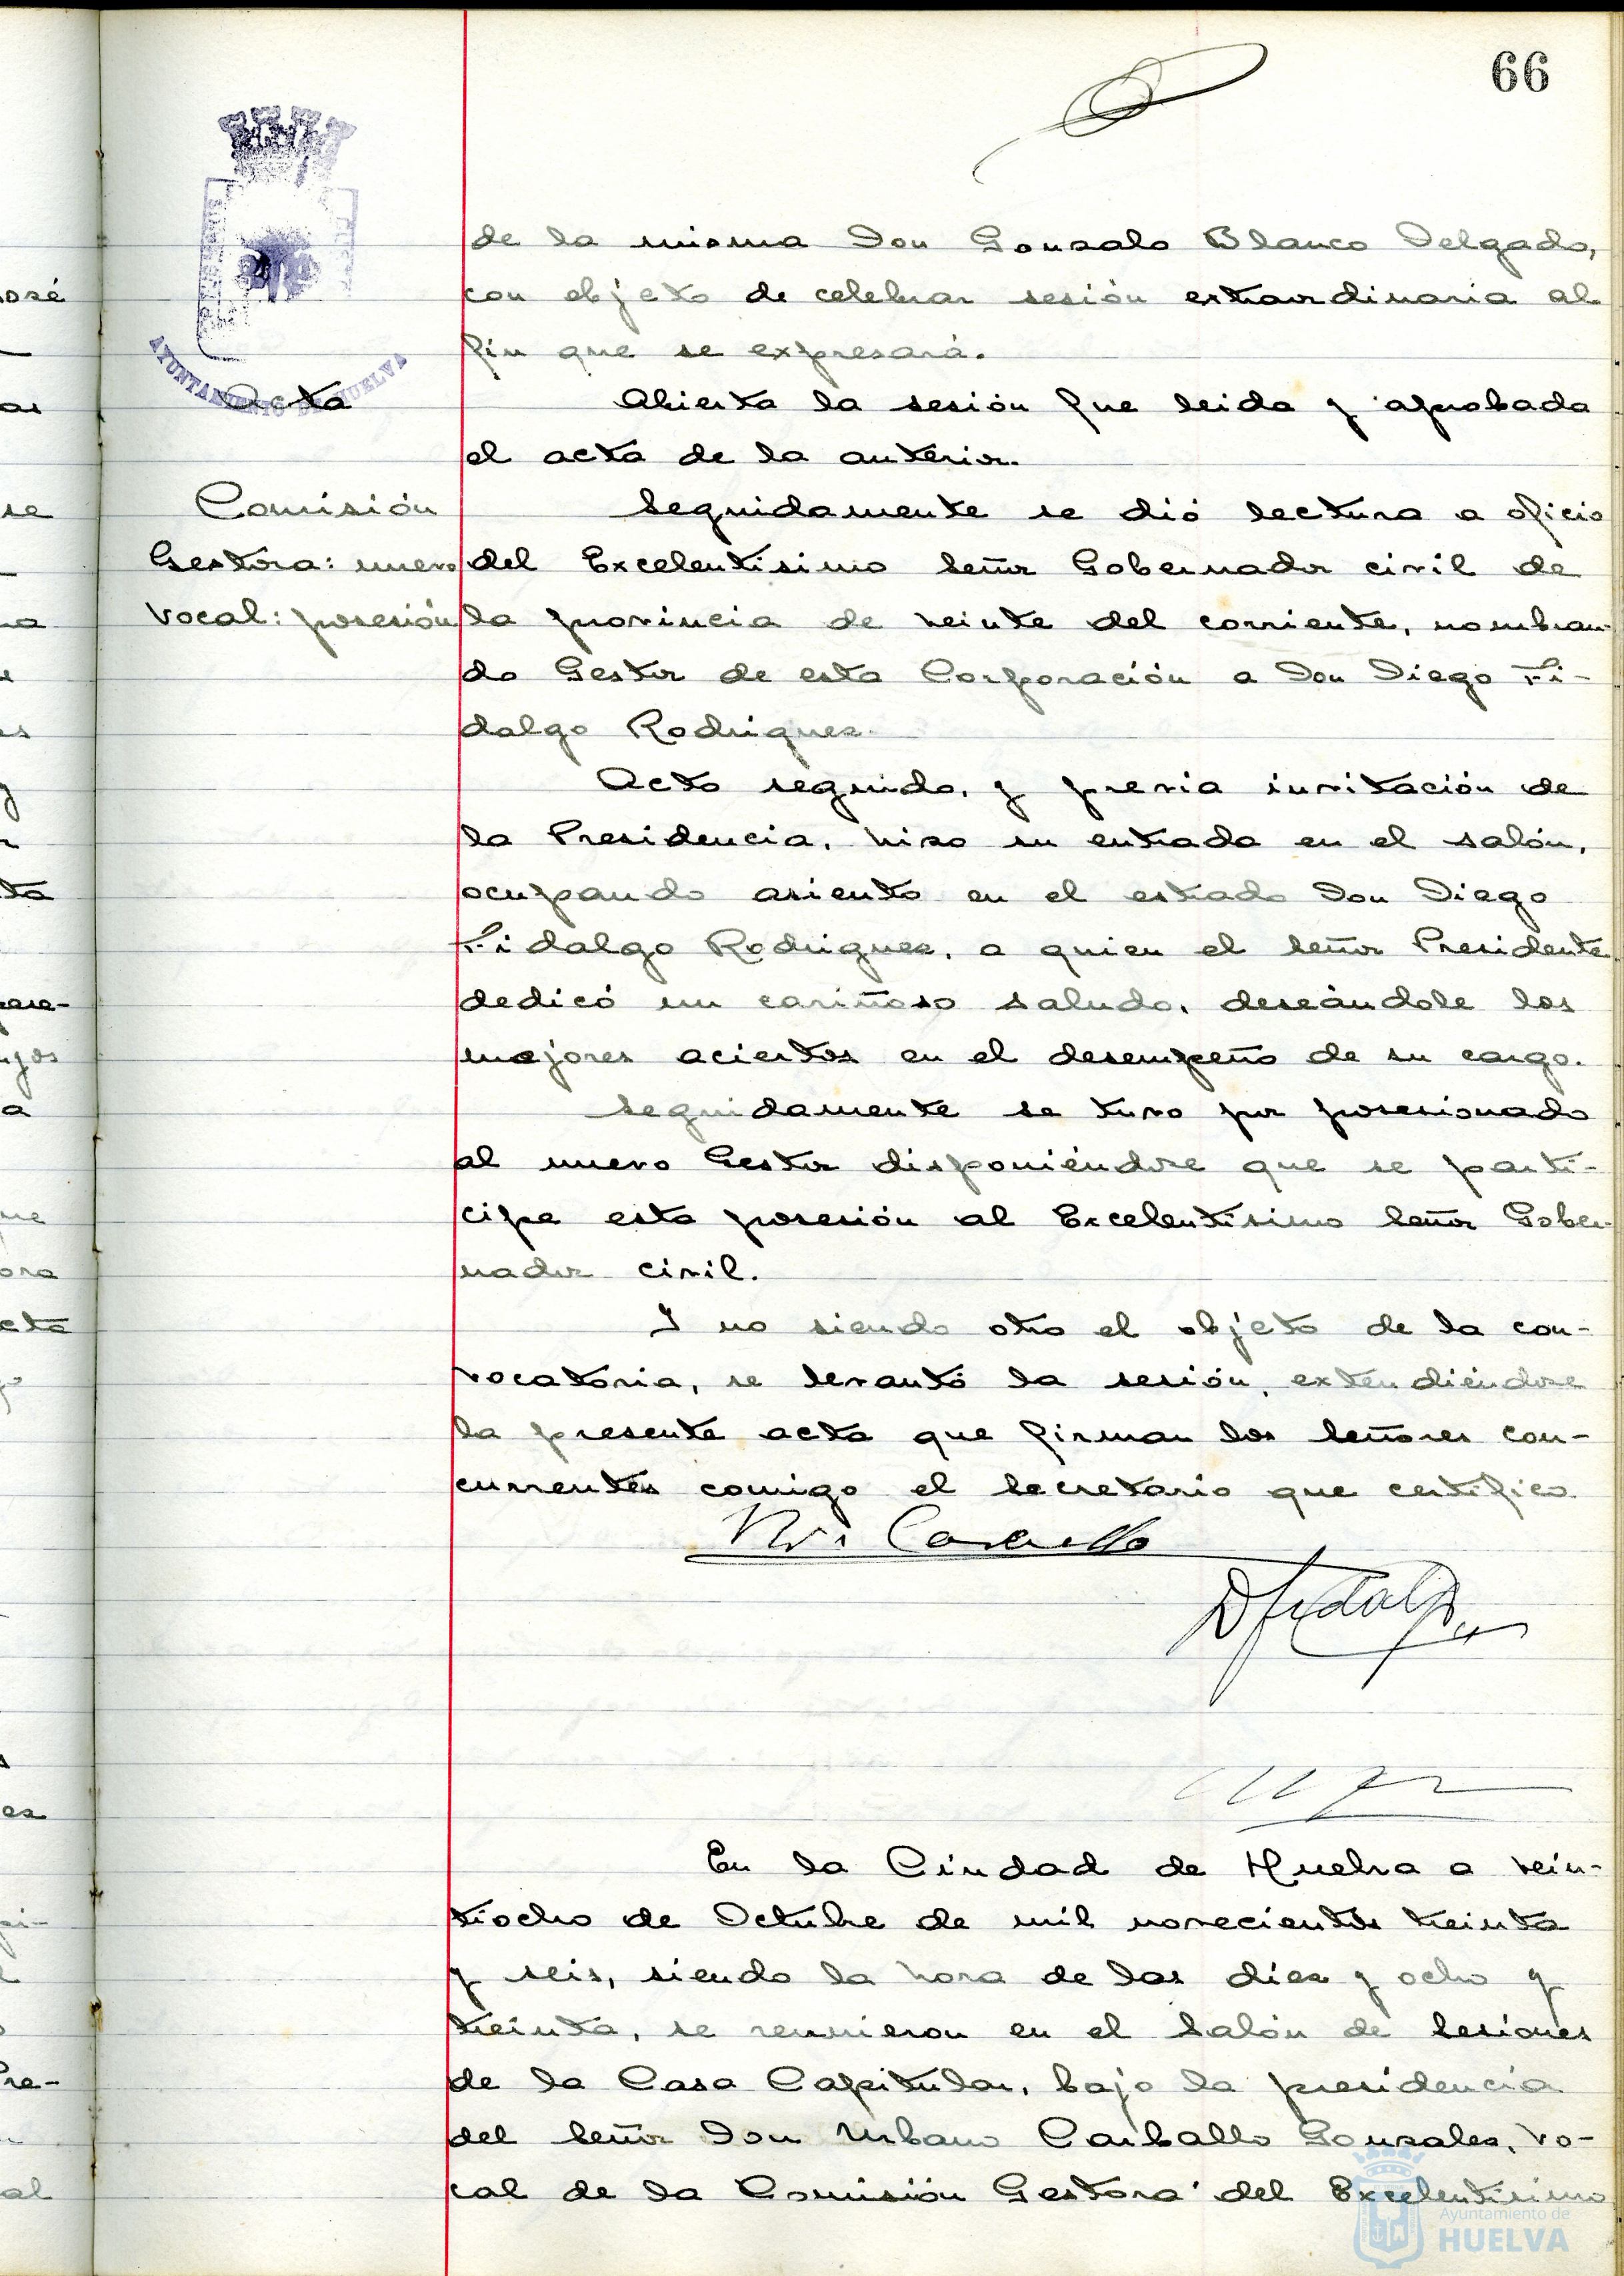 66
de la misma Don Gonzalo Blanco Delgado,
con objeto de celebrar sesión extraordinaria al
fin que se expresará.
Acta
Abierta la sesión fue leida y aprobada
el acta de la anterior.
Comisión
Gestora: nuevo
Vocal: posesión
Seguidamente se dió lectura a oficio
del Excelentisimo Señor Gobernador civil de
la provincia de veinte del corriente, nombran-
do Gestor de esta Corporación a Don Diego Fi-
dalgo Rodriguez.
Acto seguido, y previa invitación de
la Presidencia, hizo su entrada en el salón,
ocupando asiento en el estrado Don Diego
Fidalgo Rodriguez, a quien el Señor Presidente
dedicó un cariñoso saludo, deseándole los
mejores aciertos en el desempeño de su cargo.
Seguidamente se tuvo por posesionado
al nuevo Gestor disponiéndose que se parti-
cipe esta posesión al Excelentísimo Señor Gober-
nador civil.
Y no siendo otro el objeto de la con-
vocatoria, se levantó la sesión, extendiéndose
la presente acta que firman los Señores con-
currentes comigo el Secretario que certifico
Carballo
D Fidalgo
En la Ciudad de Huelva a vein-
tiocho de Octubre de mil novecientos treinta
y seis, siendo la hora de las diez y ocho y
treinta, se reunieron en el Salón de Sesiones
de la Casa Capitular, bajo la presidencia
del Señor Don Urbano Carballo Gonzalez, Vo-
cal de la Comisión Gestora del Excelentísimo
AYUNTAMIENTO DE HUELVA
Ayuntamiento de
HUELVA